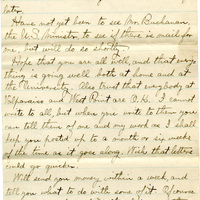 later.
Have not yet been to see Mr. Buchanan,
the U.S. Minister, to see if there is mail for
me, but will do so shortly.
Hope that you are all well, and that every
thing is going well both at home and at
the University. Also trust that everybody at
Valparaiso and West Point are O.K. I cannot
write to all, but when you write to them you
can tell them of me and my work as I shall
keep you posted up to a month or six weeks
of the time as it goes along. Wish that letters
could go quicker.
Will send you money within a week, and
tell you what to do with some of it. Of course